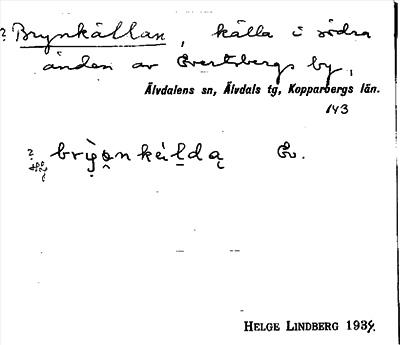 ? Brynkällan, källa i södra
änden av Evertsbergs by,
Älvdalens sn, Älvdals tg, Kopparbergs län.
143
? brỵ̀o̯n kälda̜ Ev.
HELGE LINDBERG 1934.